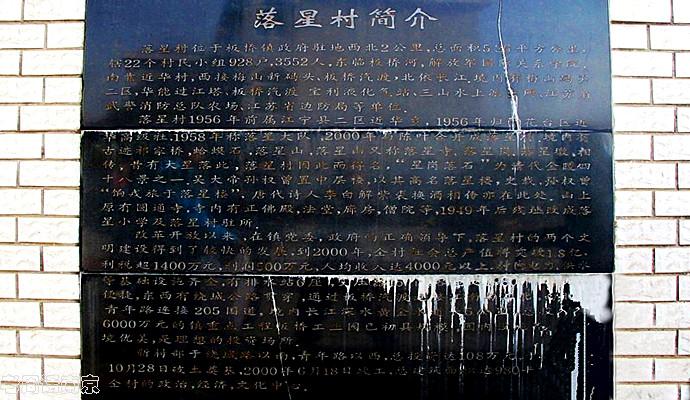 落星村简介
落星村位于板桥镇政府驻地西北2公里,总面积5.
辖22个村民小组928户,3552人,东临板桥河,解放军国际关系学院,
南靠近华村,西接梅山新码头、板桥汽渡,北依长江,境内有梅山码头
二区,华能过江塔、板桥汽渡、宝利液化气站、三山水上派出所、江苏省
武警消防总队农场、江苏省边防局等单位。
落星村1956年前属江宁县二区近华乡,1956年归雨花台区近
华高级社,1958年称落星大队,2000年与陈叶合并成落星村。境内有
古迹祁家桥,蛤蟆石,落星山,落星山又称落星寺、落星岗、落星墩,相
传,昔有大星落此,落星村因此而得名,“星岗落石”为清代金陵四
十八景之一,吴大帝孙权曾置中层楼,以其高名落星楼,史载,孙权曾
“饷戎旅于落星楼”。唐代诗人李白解紫衣换酒相传亦在此处。山上
原有圆通寺,寺内有正佛殿,法堂,廊房,僧院等,1949年后残址改成落
星小学及落星村驻所。
改革开放以来,在镇党委,政府的正确领导下,落星村的两个文
明建设得到了较快的发展,到2000年,全村社会总产值将突破1.8亿,
利税超1400万元,利润 00万元,人均收入达4000元以上,
等基础设施齐全,有排水站6座
便捷,东西有绕城公路 穿,通过板桥汽渡
青年路连接205国道,境内长江深水黄金
6000万元的镇重点工程板桥工业园已初具规模,园内
境优美,是理想的投资场所。
新村部于绕城路以南,青年路以西,总投资达108万元,
10月28日破土奠基,2000年6月18日竣工,总建筑面积达980平
全村的政治,经济,文化中心。